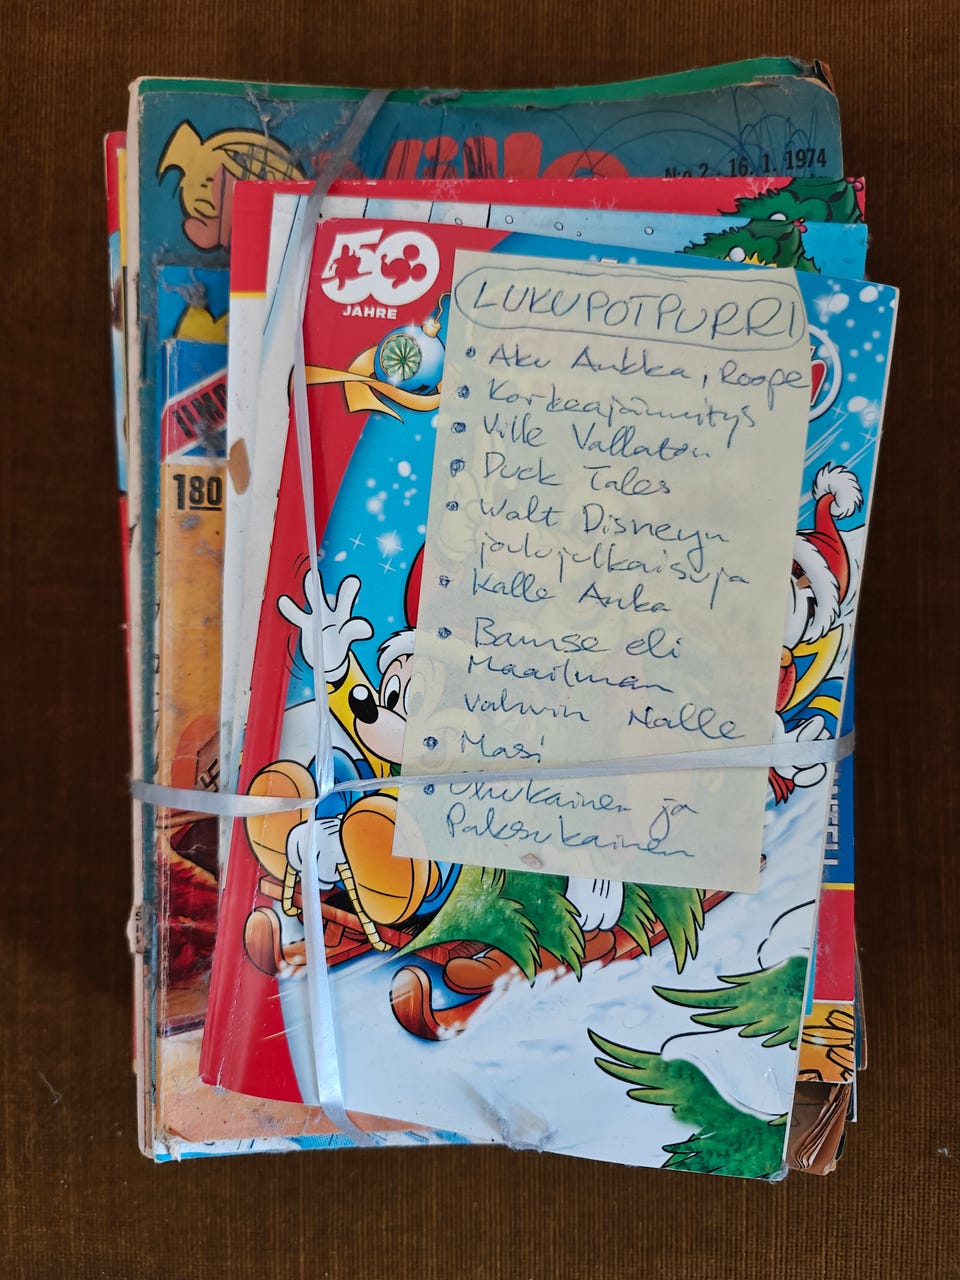 Ville
N:o 2 . 16.1.1974
50
JAHRE
180
LUKUPOTPURRI
• Aku Ankka, Roope
• Korkeajännitys
• Ville Vallaton
• Duck Tales
• Walt Disneyn
joulujulkaisuja
• Kalle Anka
• Bamse eli
Maailman
vahvin Nalle
• Masi
• Ohukainen ja
Paksukainen